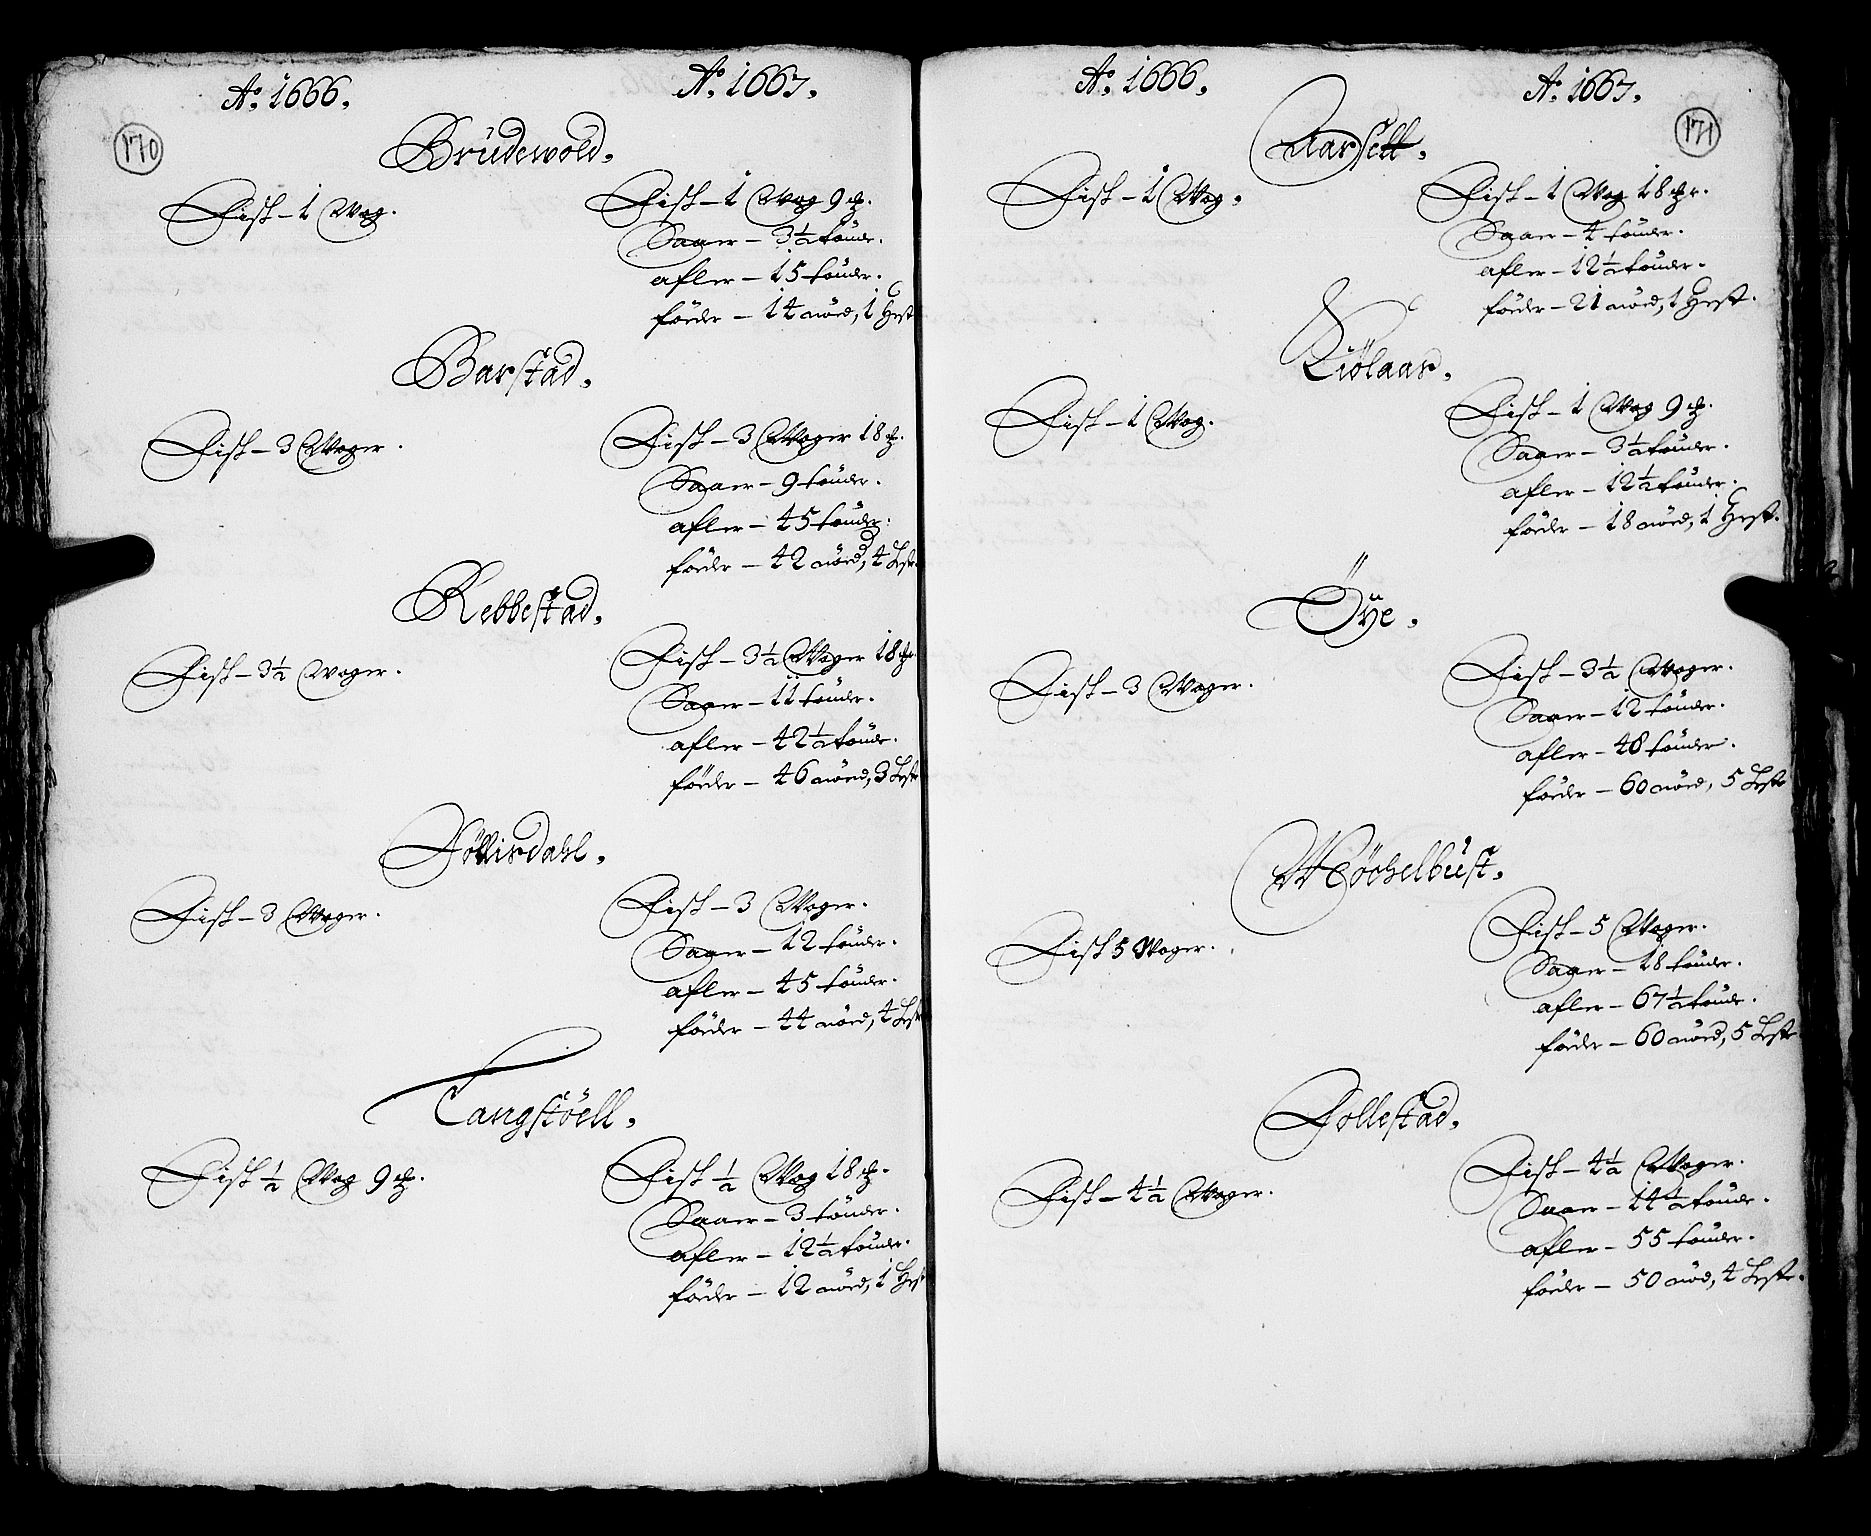 170
Aº. 1666.
Aº. 1667.
Brüdewold.
Fisk – 1 Wog.
Fisk – 1 Wog 9 ℔.
Saaer – 3½ tønder.
afler – 15 tønder.
føeder – 14 nöed, 1 Hest
Barstad.
Fisk – 3 Woger.
Fisk – 3 Woger 18 ℔.
Saaer – 9 tønder.
afler – 45 tønder.
føeder – 42 nöed, 4 Heste
Rebbestad.
Fisk – 3½ Woger.
Fisk – 3½ Woger 18 ℔.
Saaer – 11 tønder.
afler – 42½ tønder.
føeder – 46 nöed, 3 Heste
Follisdahl.
Fisk – 3 Woger.
Fisk – 3 Woger.
Saaer – 12 tønder.
afler – 45 tønder.
føeder – 44 nöed, 4 Heste
Langstöell.
Fisk ½ Wog 9 ℔.
Fisk ½ Wog 18 ℔.
Saaer – 3 tønder.
afler – 12½ tønder.
føeder – 12 nöed, 1 Hest
171
Aº. 1666.
Aº. 1667.
Aarsett.
Fisk – 1 Wog.
Fisk – 1 Wog 18 ℔r.
Saaer – 4 tønder.
afler – 12½ tønder.
føder – 21 nöed, 1 Hest.
Kiölaas.
Fisk – 1 Wog.
Fisk – 1 Wog 9 ℔.
Saaer – 3½ tønder.
afler – 12½ tønder.
føeder – 18 nöed, 1 Hest.
Öÿe.
Fisk – 3 Woger.
Fisk – 3½ Woger.
Saaer – 12 tønder.
afler – 48 tønder.
føeder – 60 nöed, 5 Heste
Möchelbüst.
Fisk 5 Woger.
Fisk – 5 Woger.
Saaer – 18 tønder.
afler – 67½ tønder.
føeder – 60 nöed, 5 Heste
Follestad.
Fisk – 4½ Woger.
Fisk – 4½ Woger.
Saaer – 14½ tønder.
afler – 55 tønder.
føeder – 50 nöd, 4 Heste.